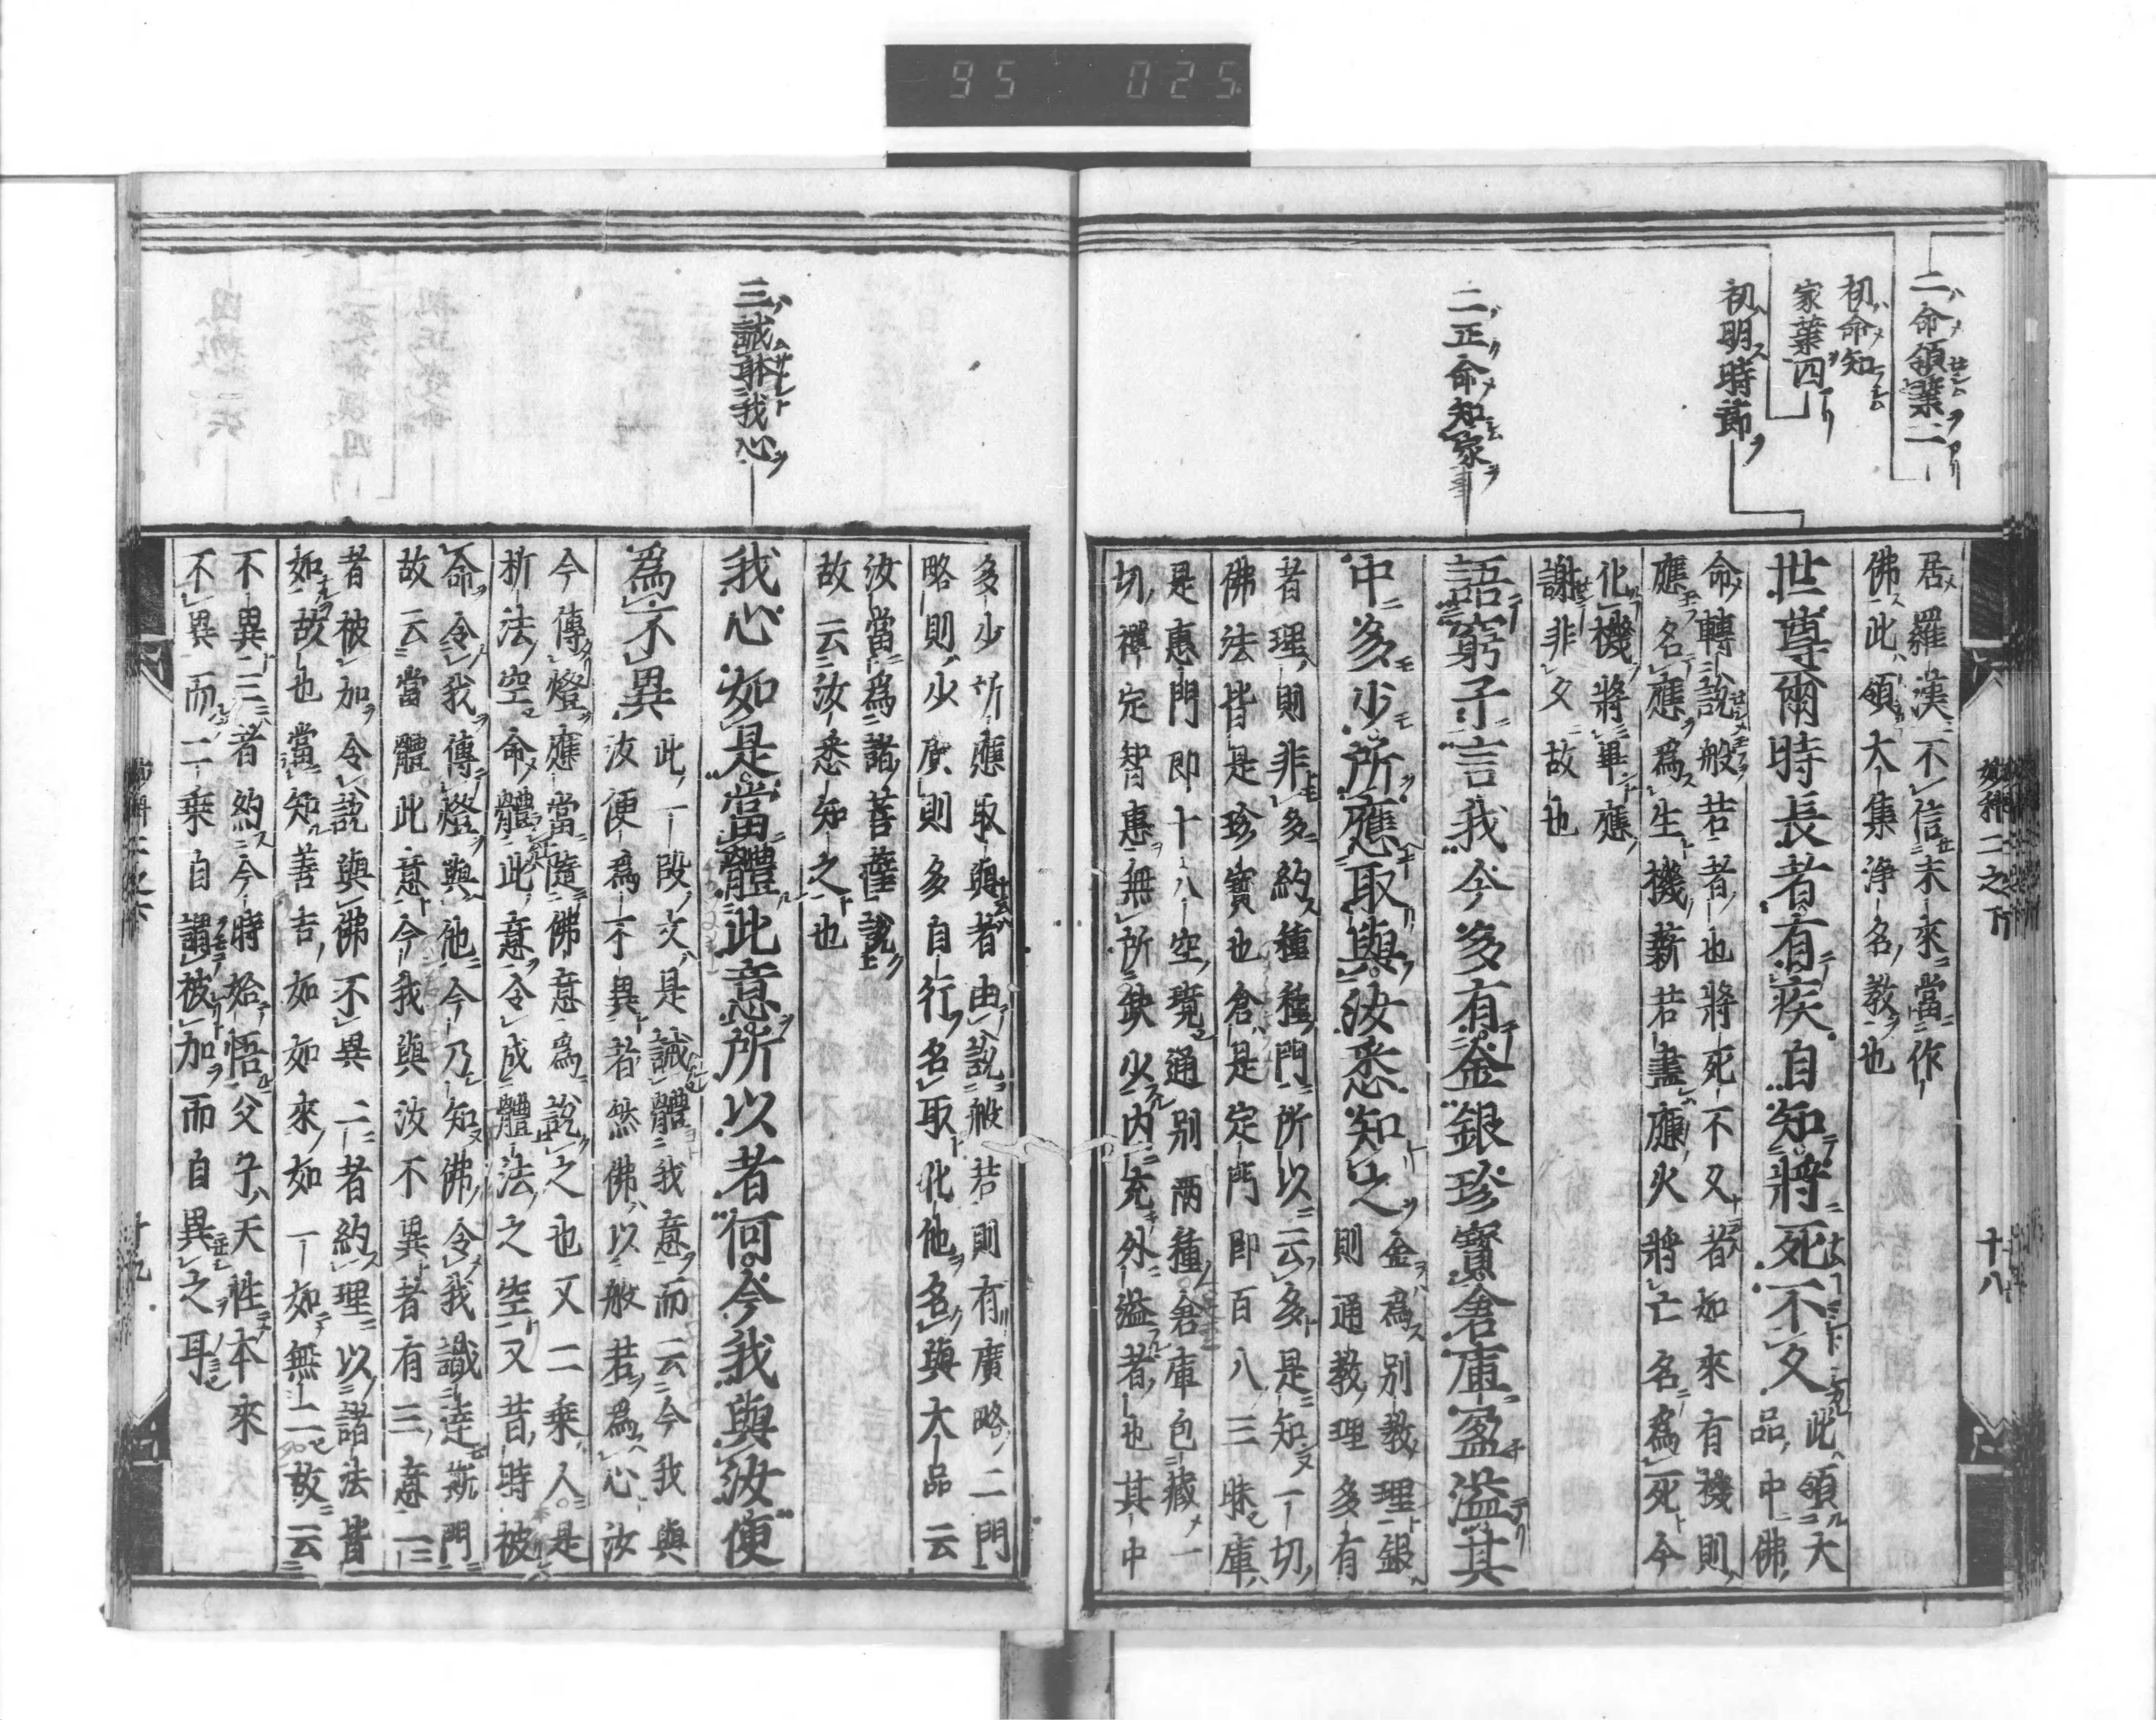 95 025
二命領業二
初命知
家業四
初明時節
二正命知家事
居羅漢不信未來當作
佛此領大集淨名教也
世尊爾時長者有疾自知將死不久
此領大
品中佛
命轉說般若者也將死不久者如來有機則
應名應爲生機薪若盡應火將亡名爲死今
化機將畢應
謝非久故也
語窮子言我今多有金銀珍寶倉庫盈溢其
中多少所應取與汝悉知之
金爲別教理銀
則通教理多有
者理則非多約種種門所以云多是知一切
佛法皆是珍寶也倉是定門即百八三昧庫
是惠門即十八空境通別兩種倉庫包藏一
切禪定智惠無所缺少內充外溢者也其中
妙科二之下
十八
三誡躰我心
多少所應取與者由說般若則有廣略二門
略則少廣則多自行名取化他名與大品云
汝當爲諸菩薩說
故云汝悉知之也
我心如是當體此意所以者何今我與汝便
爲不異
此一段文是誡體我意而云今我與
汝便爲不異者然佛以般若爲心汝
今傳燈應當隨佛意爲說之也又二乘人是
析法空命體此意令成體法之空又昔時被
命令我傳燈與他今乃知佛令我識達斯門
故云當體此意今我與汝不異者有三意一
者被加令說與佛不異二者約理以諸法皆
如故也當知善吉如如來如一如無二故云
不異三者約今時始悟父子天性本來
不異而二乘自謂被加而自異之耳
十九